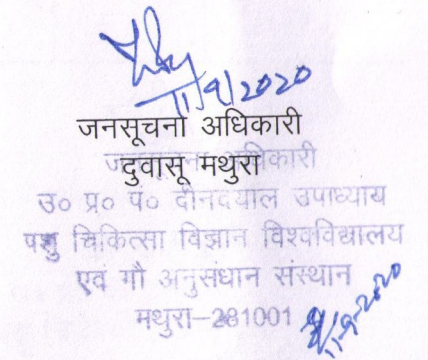 11/9/2020
जनसूचना अधिकारी
दुवासू मथुरा
जनसूचना अधिकारी
उ० प्र० पं० दीनदयाल उपाध्याय
पशु चिकित्सा विज्ञान विश्वविद्यालय
एवं गौ अनुसंधान संस्थान
मथुरा-281001